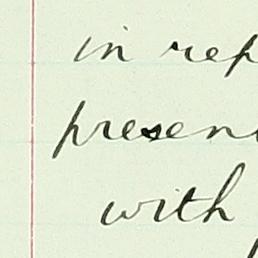 in rep
presen
with